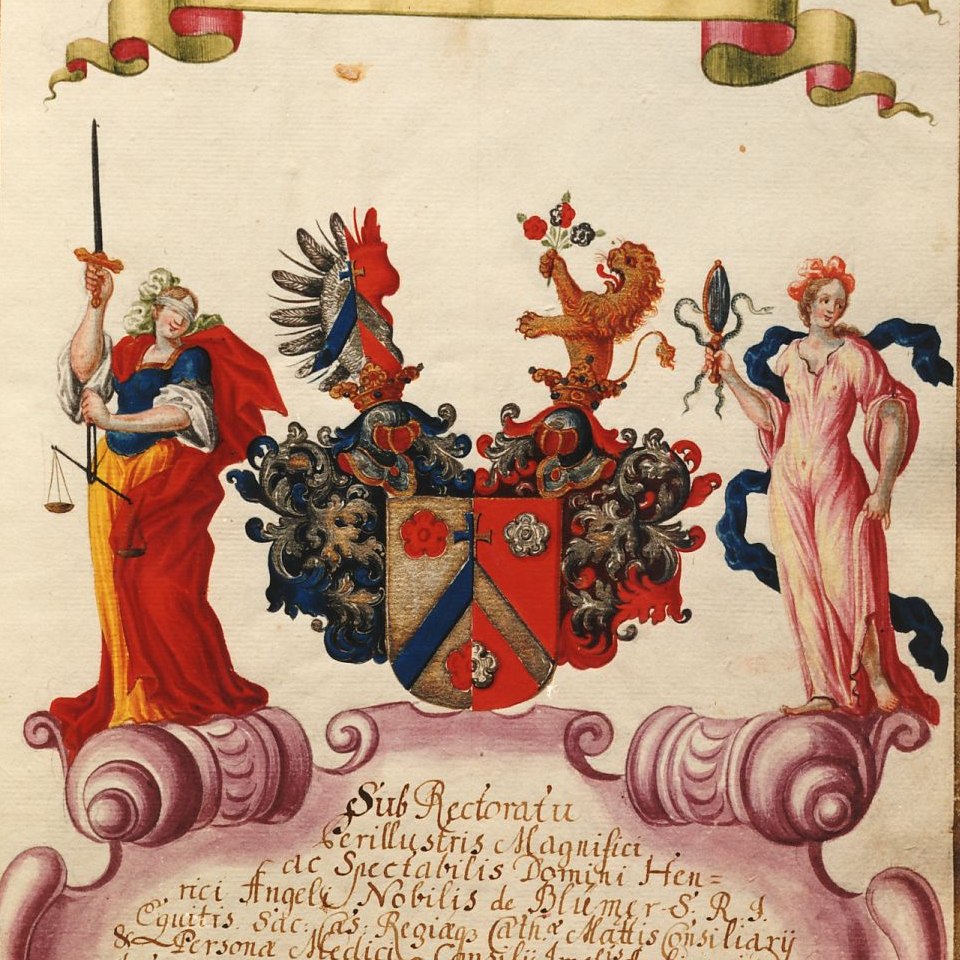 Sub Rectoratu
Perillustris Magnifici
ac Spectabilis Domini Hen=
rici Angeli Nobilis de Blümer S. R. I.
Equitis. Sac: Cæs: Regiæq; Cathæ Mattis Consiliarÿ
& Personæ Medici Consilÿ